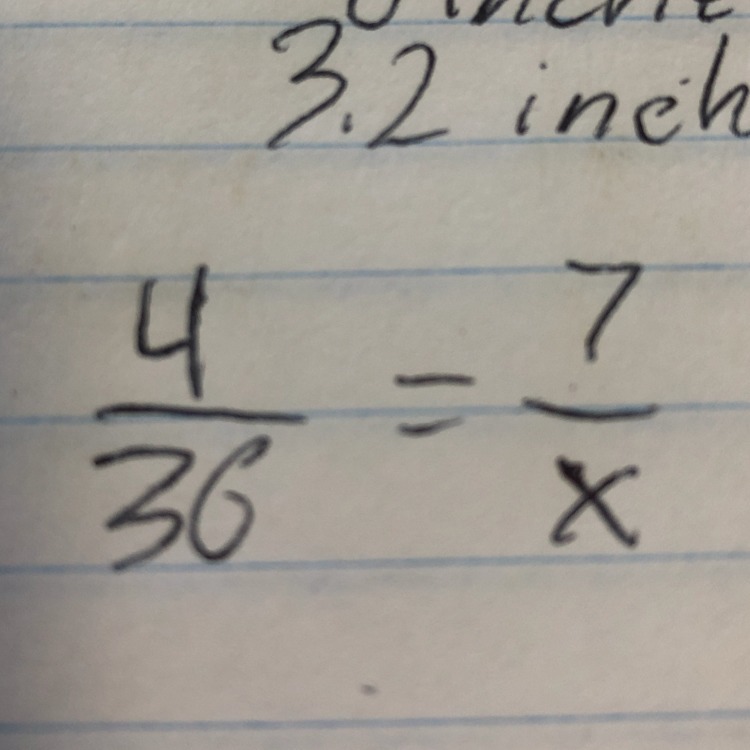 3.2 inch
4/36 = 7/x